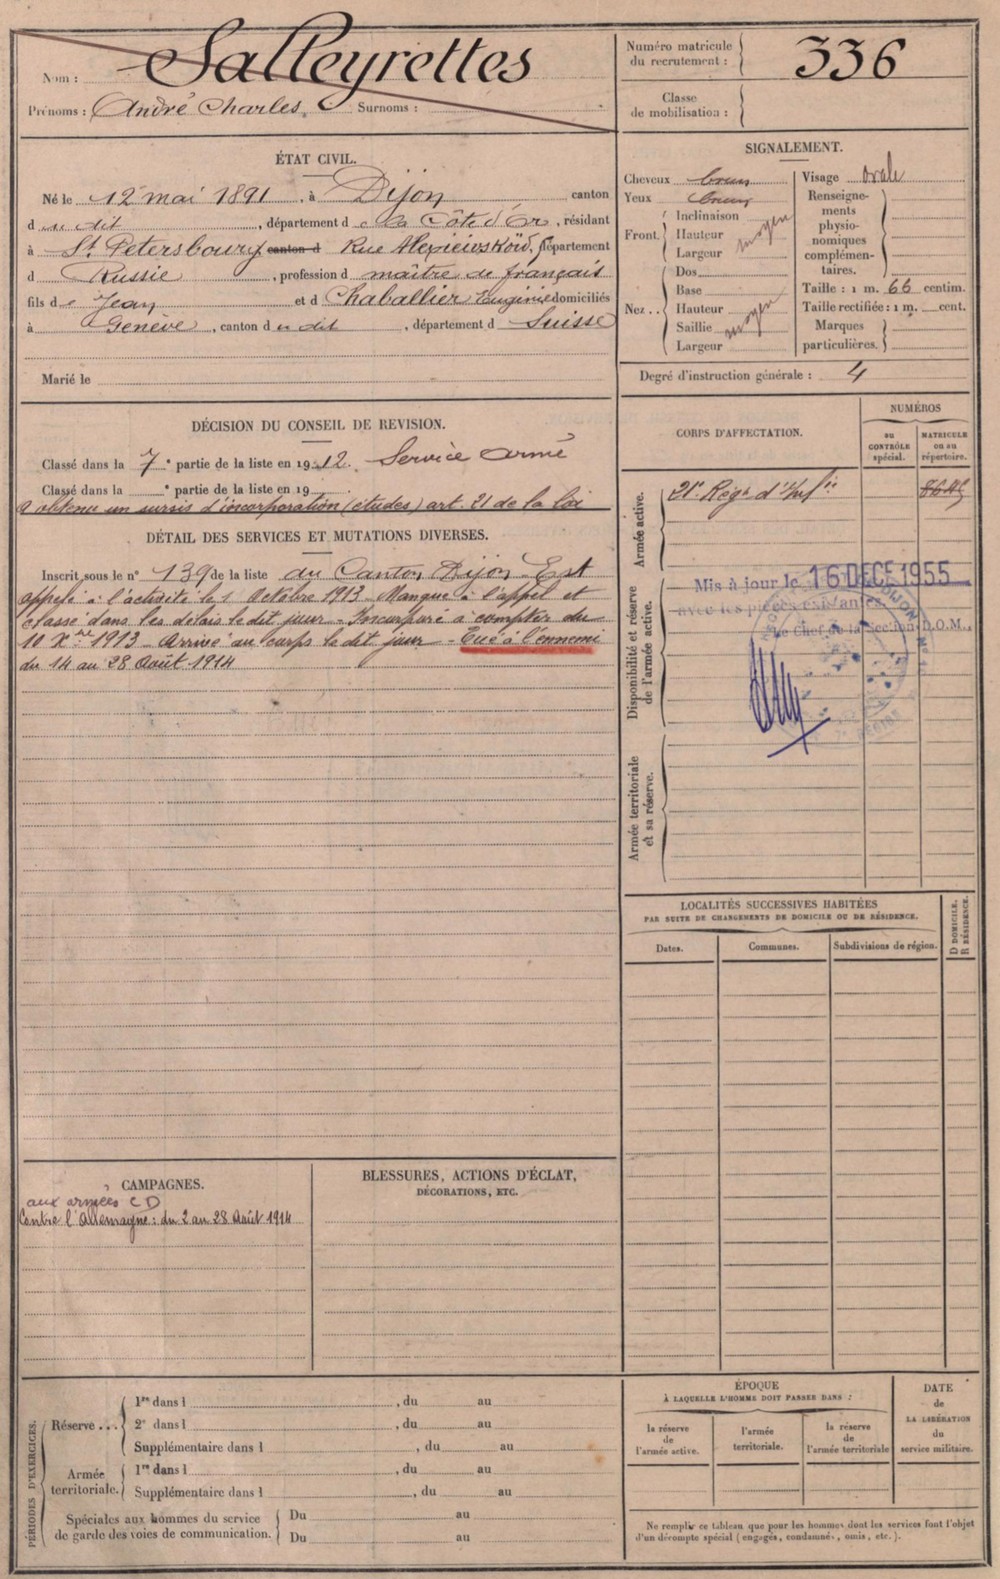 Nom : Salleyrettes
Prénoms : André Charles. Surnoms :
Numéro matricule du recrutement : 336
Classe de mobilisation :
ÉTAT CIVIL.
Né le 12 mai 1891, à Dijon canton
d u dit, département d e la Côte d'Or, résidant
à St Petersbourg canton d Rue Alexieivskoïd, département
d Russie, profession d maître de français
fils de Jean et d Chaballier Eugénie domiciliés
à Genève, canton d u dit, département d Suisse
Marié le
SIGNALEMENT.
Cheveux brun
Yeux bruns
Front. Inclinaison
Hauteur moyen
Largeur
Nez.. Dos
Base
Hauteur moyen
Saillie
Largeur
Visage ovale
Renseignements physionomiques complémentaires.
Taille : 1 m. 66 centim.
Taille rectifiée : 1 m. cent.
Marques particulières.
Degré d'instruction générale : 4
DÉCISION DU CONSEIL DE REVISION.
Classé dans la 7e partie de la liste en 1912. Service armé
Classé dans la e partie de la liste en 19
a obtenu un sursis d'incorporation (études) art. 21 de la loi
DÉTAIL DES SERVICES ET MUTATIONS DIVERSES.
Inscrit sous le n° 139 de la liste du Canton Dijon-Est
appelé à l'activité le 1 Octobre 1913 - Manque à l'appel et
classé dans les délais le dit jour - Incorporé à compter du
10 Xbre 1913 - Arrivé au corps le dit jour - Tué à l'ennemi
du 14 au 28 Août 1914
CORPS D'AFFECTATION.
NUMÉROS
au CONTRÔLE spécial.
MATRICULE ou au répertoire.
Armée active.
21e Régt d'Infie
Disponibilité et réserve de l'armée active.
Mis à jour le 16 DECE 1955
avec les pièces existantes.
Le Chef de la Section D.O.M.,
Armée territoriale et sa réserve.
LOCALITÉS SUCCESSIVES HABITÉES
PAR SUITE DE CHANGEMENTS DE DOMICILE OU DE RÉSIDENCE.
D DOMICILE.
R RÉSIDENCE.
Dates. Communes. Subdivisions de région.
CAMPAGNES.
aux armées CD
Contre l'Allemagne : du 2 au 28 Août 1914
BLESSURES, ACTIONS D'ÉCLAT,
DÉCORATIONS, ETC.
PÉRIODES D'EXERCICES.
Réserve... 1re dans l , du au
2e dans l , du au
Supplémentaire dans l , du au
Armée territoriale. 1re dans l , du au
Supplémentaire dans l , du au
Spéciales aux hommes du service de garde des voies de communication. Du au
Du au
ÉPOQUE
À LAQUELLE L'HOMME DOIT PASSER DANS :
la réserve de l'armée active.
l'armée territoriale.
la réserve de l'armée territoriale
DATE de LA LIBÉRATION du service militaire.
Ne remplir ce tableau que pour les hommes dont les services font l'objet
d'un décompte spécial (engagés, condamnés, omis, etc.).